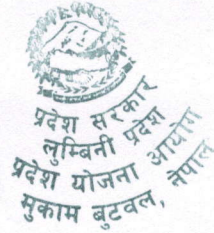 प्रदेश सरकार
लुम्बिनी प्रदेश
प्रदेश योजना आयोग
मुकाम बुटवल, नेपाल